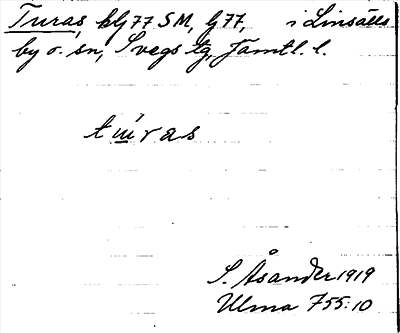 Turas, hlg 77 SM, lg 77, i Linsälls
by o. sn, Svegs tg, Jämtl. l.
túras
S. Åsander 1919
Ulma 755:10